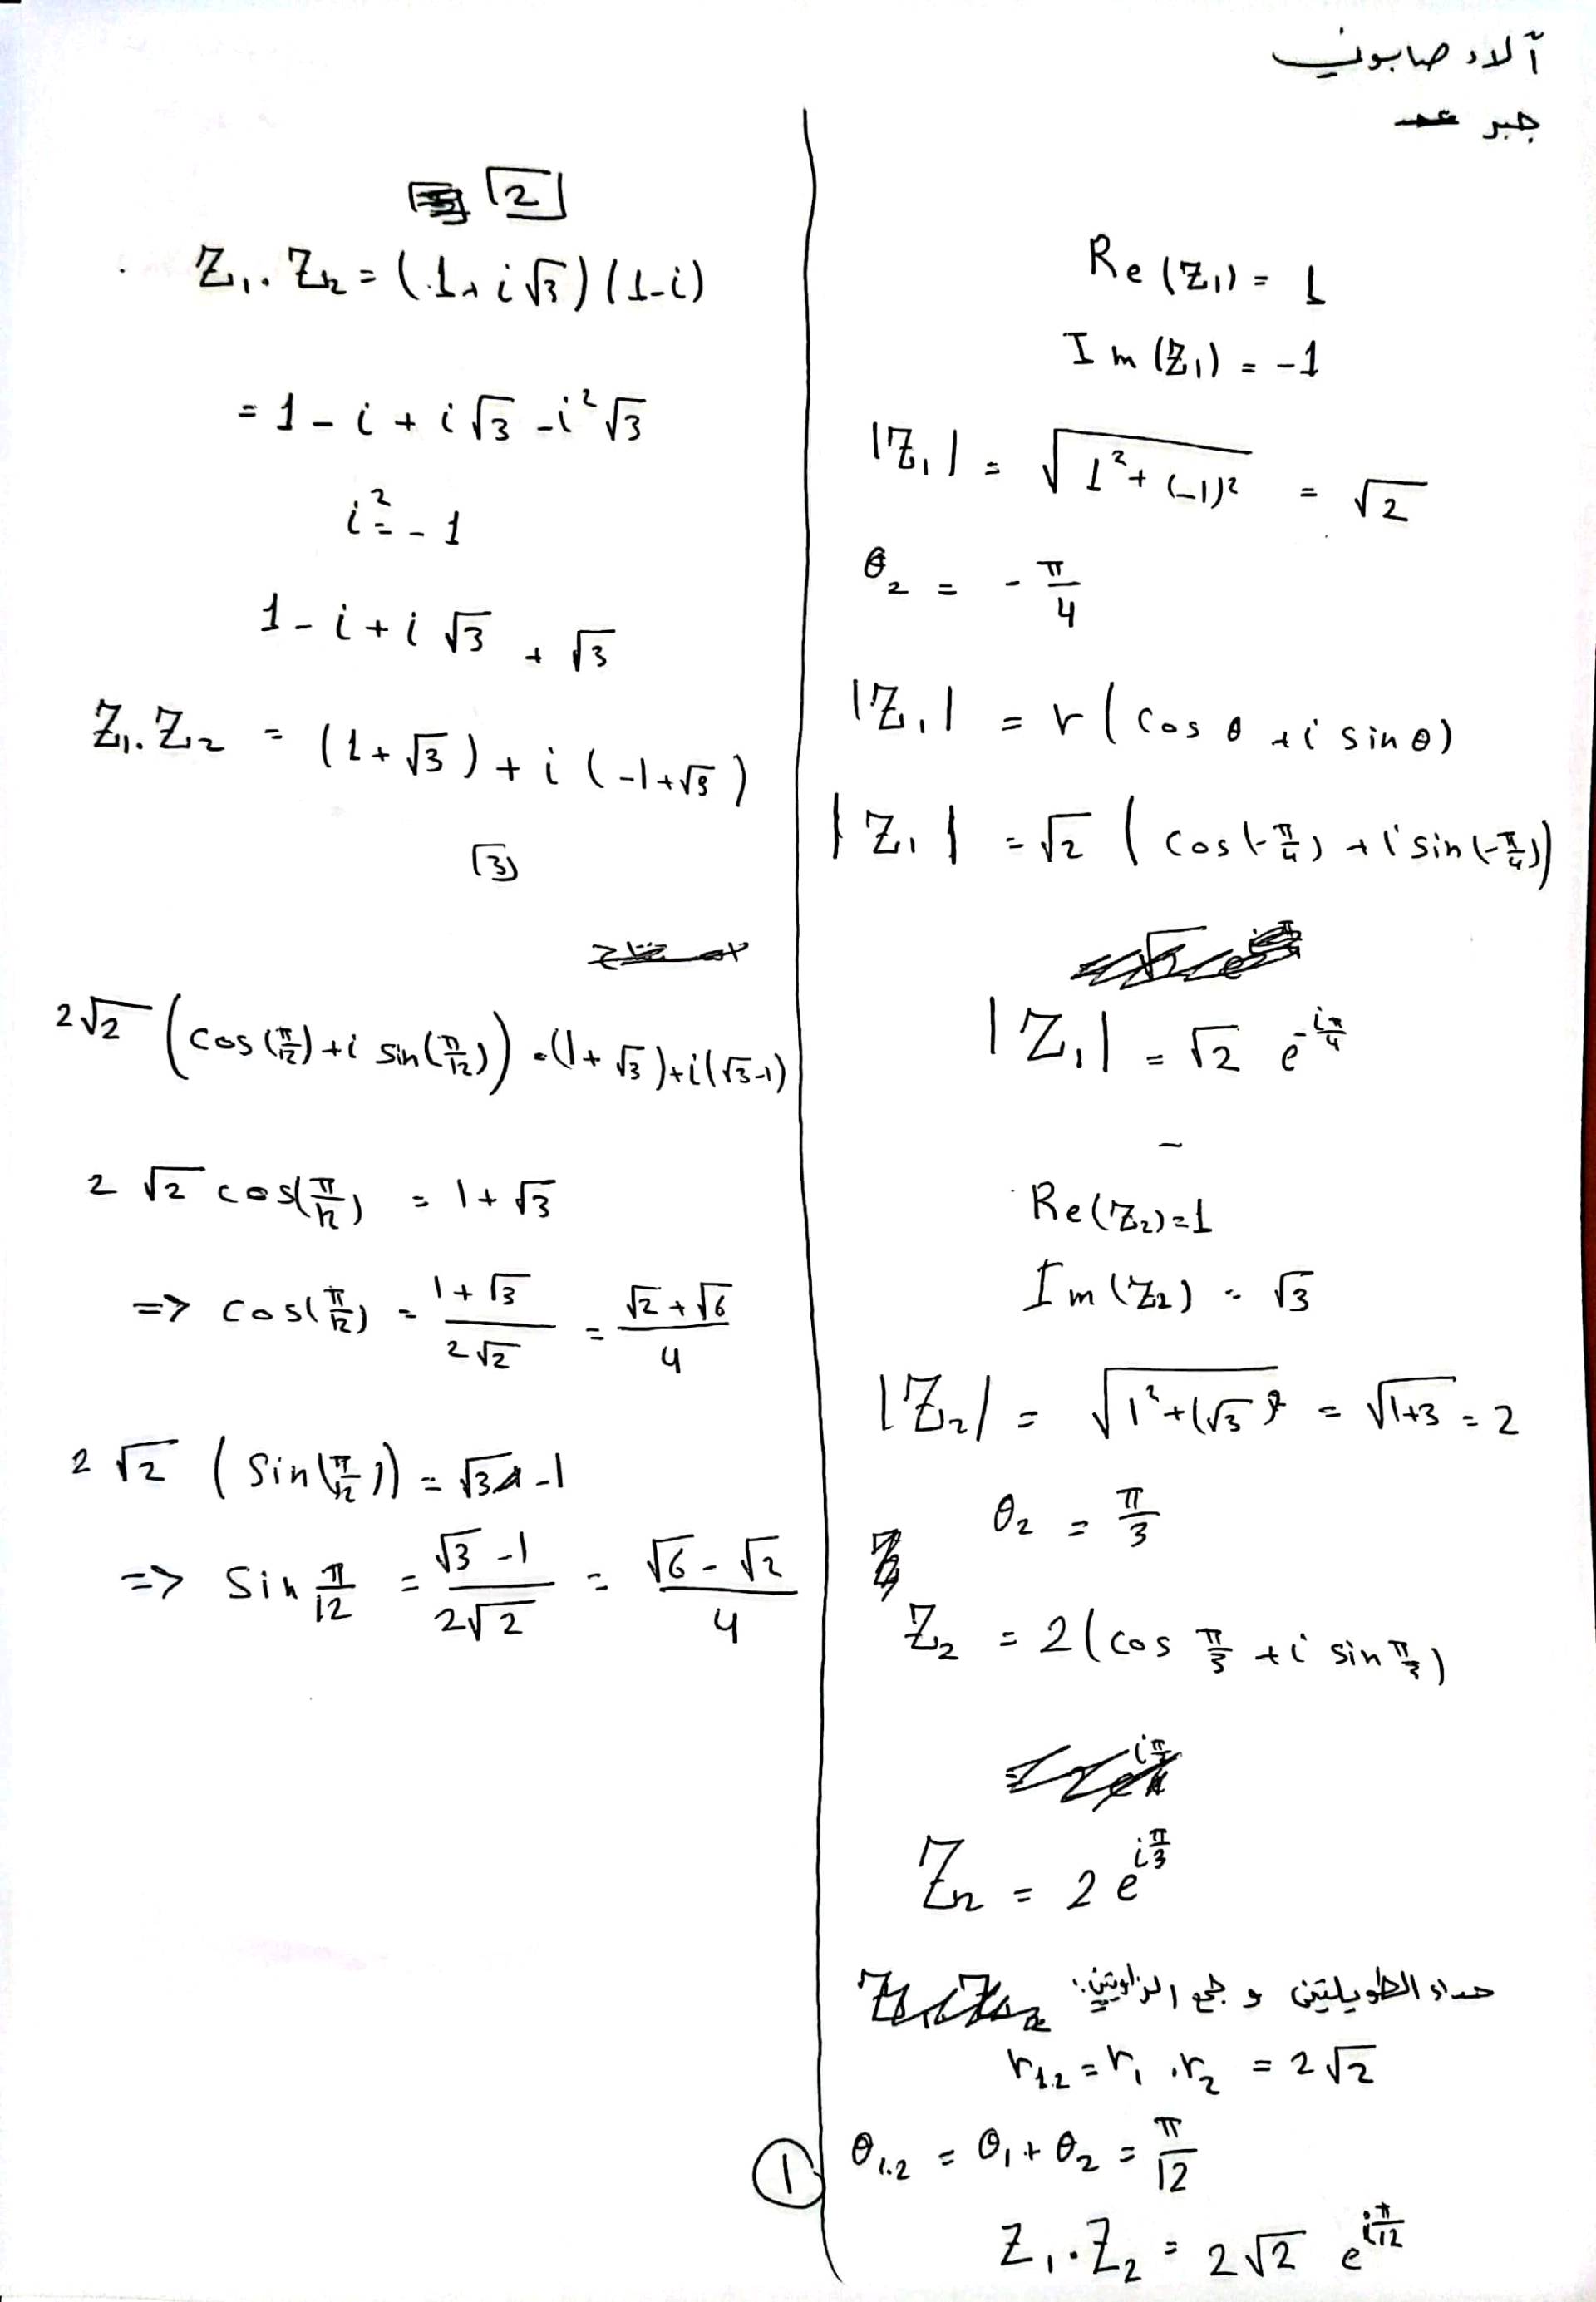 آلاء صابوني
جبر
Re(Z₁) = 1
Im(Z₁) = -1
|Z₁| = √(1² + (-1)²) = √2
θ₂ = -π/4
|Z₁| = r(cos θ + i sin θ)
|Z₁| = √2 (cos(-π/4) + i sin(-π/4))
|Z₁| = √2 e^(-iπ/4)
Re(Z₂) = 1
Im(Z₂) = √3
|Z₂| = √(1² + (√3)²) = √(1+3) = 2
θ₂ = π/3
Z₂ = 2(cos π/3 + i sin π/3)
Z₂ = 2 e^(iπ/3)
جداء الطويلتين و جمع الزاويتين:
r₁.₂ = r₁ . r₂ = 2√2
θ₁.₂ = θ₁ + θ₂ = π/12
Z₁ . Z₂ = 2√2 e^(iπ/12)
①
2
Z₁ . Z₂ = (1 + i√3)(1-i)
= 1 - i + i√3 - i²√3
i² = -1
1 - i + i√3 + √3
Z₁ . Z₂ = (1+√3) + i(-1+√3)
3
2√2 (cos(π/12) + i sin(π/12)) = (1+√3) + i(√3-1)
2√2 cos(π/12) = 1+√3
=> cos(π/12) = (1+√3)/(2√2) = (√2+√6)/4
2√2 (Sin(π/12)) = √3 -1
=> Sin π/12 = (√3 -1)/(2√2) = (√6 - √2)/4